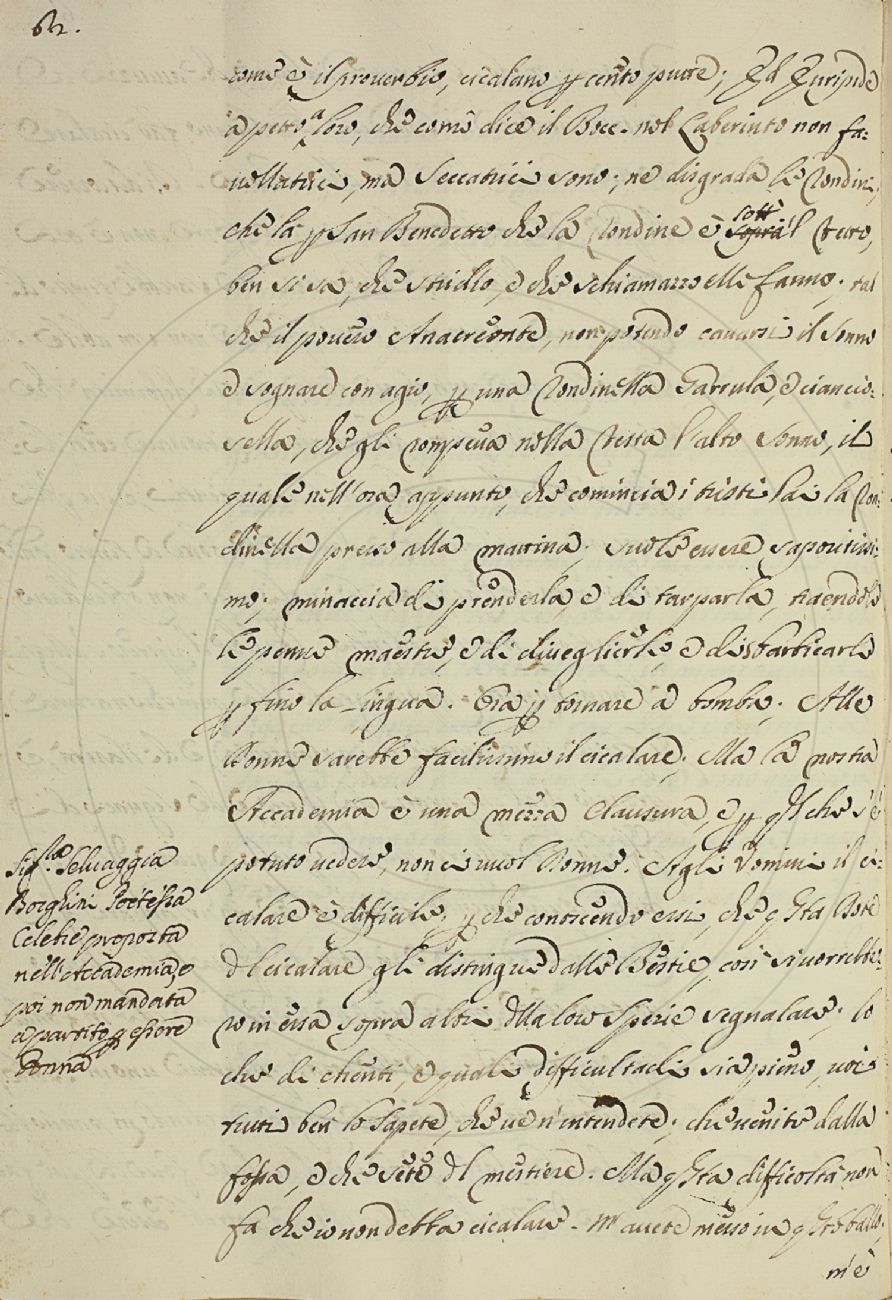 62.
come è il proverbio, cicalano p cento putte; Ed Euripide
a petto a loro, che come dice il Bocc. nel Laberinto non fa-
vellatrici, ma Seccatrici sono; ne disgrada le rondini,
che la p San Benedetto che la rondine è sopra sott' 'l tetto,
ben si sa, che stridio, e che schiamazzo elle fanno; tal
che il povero Anacreonte, non potendo cavarsi il sonno
e sognare con agio, p una rondinella garrula, e ciancio-
sella, che gli rompeva nella testa l'alto sonno, il
quale nell'ora appunto, che comincia i tristi lai la ron-
dinella presso alla mattina, suole essere saporitissi-
mo; minaccia di prenderla, e di tarparla, traendole
le penne maestre, e di divegliерle, e di sbarbicarle
p fino la Lingua. Ora p tornare a bomba; Alle
Donne sarebbe facilissimo il cicalare; Ma la nostra
Accademia è una mezza Clausura, e p qsl che s'è
potuto vedere, non ci vuol Donne. Agli Uomini il ci-
calare è difficile; p che conoscendo essi, che qsta Dote
dl cicalare gli distingue dalle Bestie, così si vorrebbe-
ro in essa sopra altri dlla loro spezie segnalare; lo
che di chenti, e quali difficultadi sia pieno, voi
tutti ben lo sapete, che ve n'intendete; che venite dalla
fossa, e che sete dl mestiere. Ma qsta difficoltà non
fa che io non debba cicalare. M'avete messo in qsto ballo;
m'è
Sig.ra Selvaggia
Borghini Poetessa
Celebre proposta
nell'Accademia, e
poi non mandata
a partito p essere
Donna